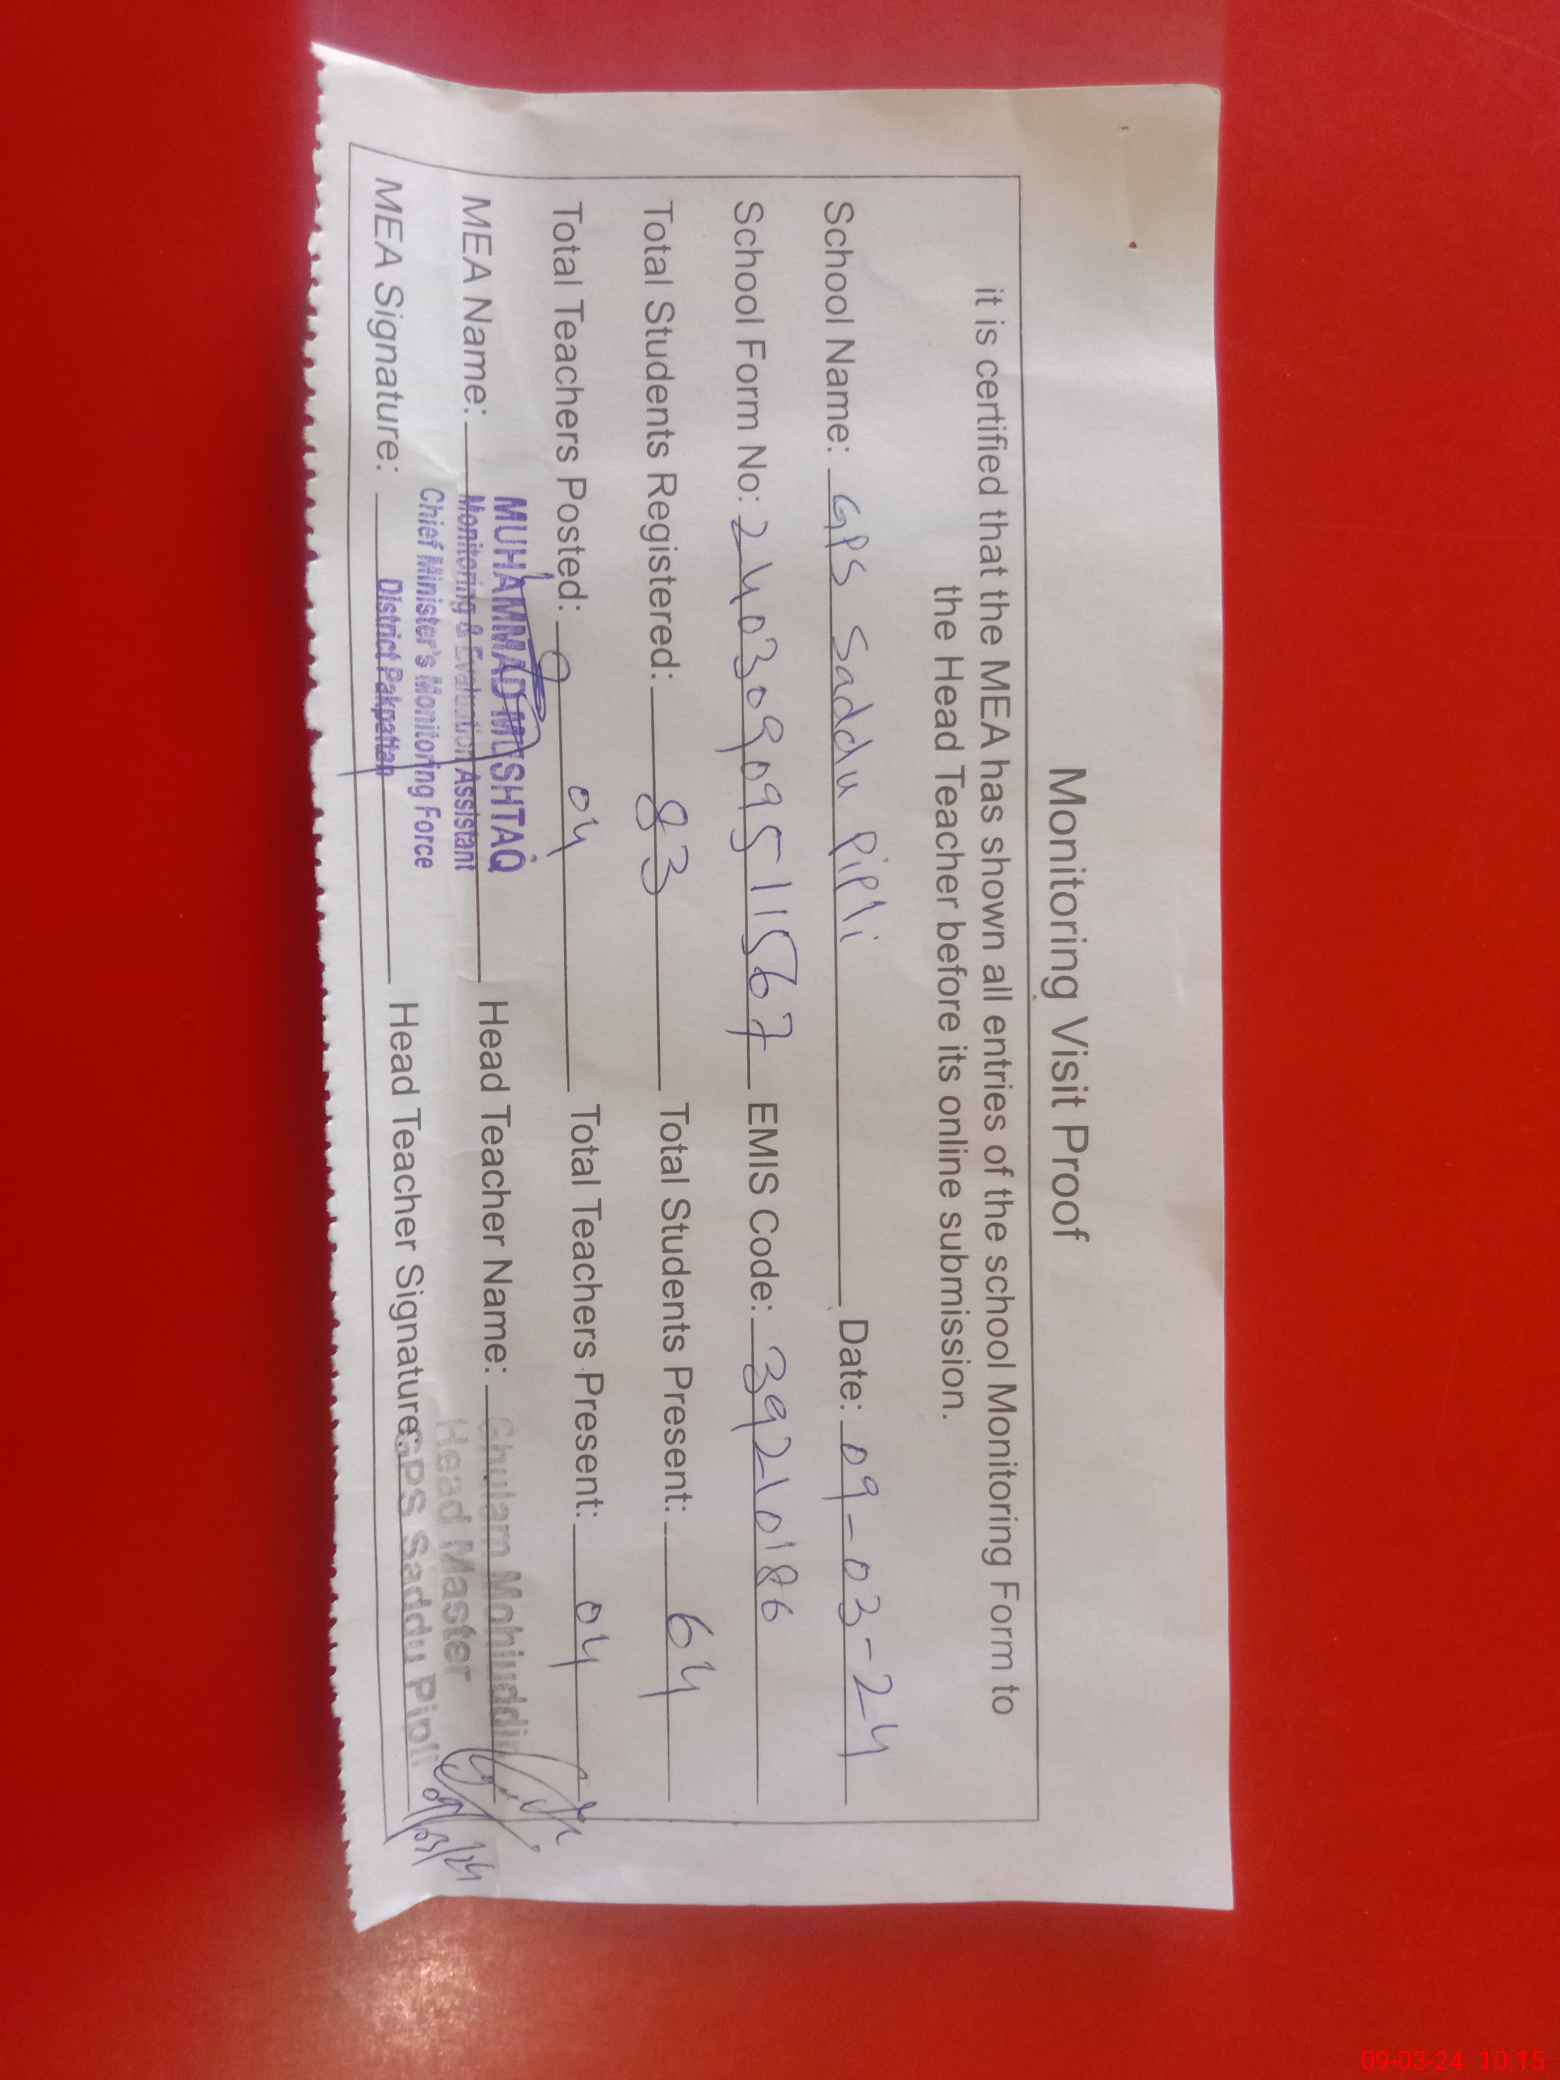 Monitoring Visit Proof
it is certified that the MEA has shown all entries of the school Monitoring Form to
the Head Teacher before its online submission.
School Name: GPS Saddu Pipli Date: 09-03-24
School Form No: 24030909511567 EMIS Code: 39210186
Total Students Registered: 83 Total Students Present: 64
Total Teachers Posted: 04 Total Teachers Present: 04
MUHAMMAD MUSHTAQ
MEA Name: Monitoring & Evaluation Assistant Head Teacher Name: Ghulam Mohiuddin
Chief Minister's Monitoring Force Head Master
MEA Signature: District Pakpattan Head Teacher Signature: GPS Saddu Pipli
09/03/24
09-03-24 10:15